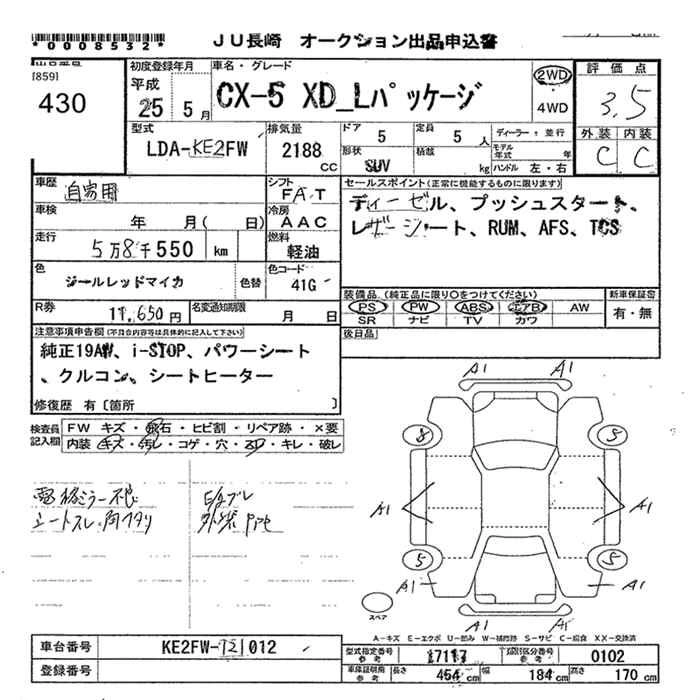 *0008532* JU長崎 オークション出品申込書
[859]
430
初度登録年月
平成
25 5月
車名・グレード
CX-5 XD_Lパッケージ
2WD
4WD
評価点
3.5
外装 内装
C C
型式
LDA-KE2FW
排気量
2188 cc
ドア 5
定員 5 人
形状 SUV
積載 kg
ディーラー・並行
モデル年式 年
ハンドル 左・右
車歴 自家用
シフト FAT
車検 年 月( 日)
冷房 AAC
走行 5万8千550 km
燃料 軽油
色 ジールレッドマイカ 色替
色コード 41G
R券 11,650円
名変通知期限 月 日
セールスポイント(正常に機能するものに限ります)
ディーゼル、プッシュスタート、
レザーシート、RUM、AFS、TCS
装備品 (純正品に限り○をつけてください)
PS PW ABS エアB AW
SR ナビ TV カワ
新車保証書
有・無
後日品
注意事項申告欄(不具合内容等は具体的に記入して下さい)
純正19AW、i-STOP、パワーシート
、クルコン、シートヒーター
修復歴 有〔箇所 〕
検査員記入欄
FW キズ・飛石・ヒビ割・リペア跡・×要
内装 キズ・汚レ・コゲ・穴・スレ・キレ・破レ
電格ミラー不良
シートスレ・内キズ
外装
A1 A1
8 5
A1 A1
5 5
A1 A1
A1 A1
スペア
A-キズ E-エクボ U-凹み W-補修跡 S-サビ C-腐食 XX-交換済
車台番号 KE2FW-121012
登録番号
型式指定番号 参考 17117
類別区分番号 参考 0102
車庫証明用 参考 長さ 454cm 幅 184cm 高さ 170cm